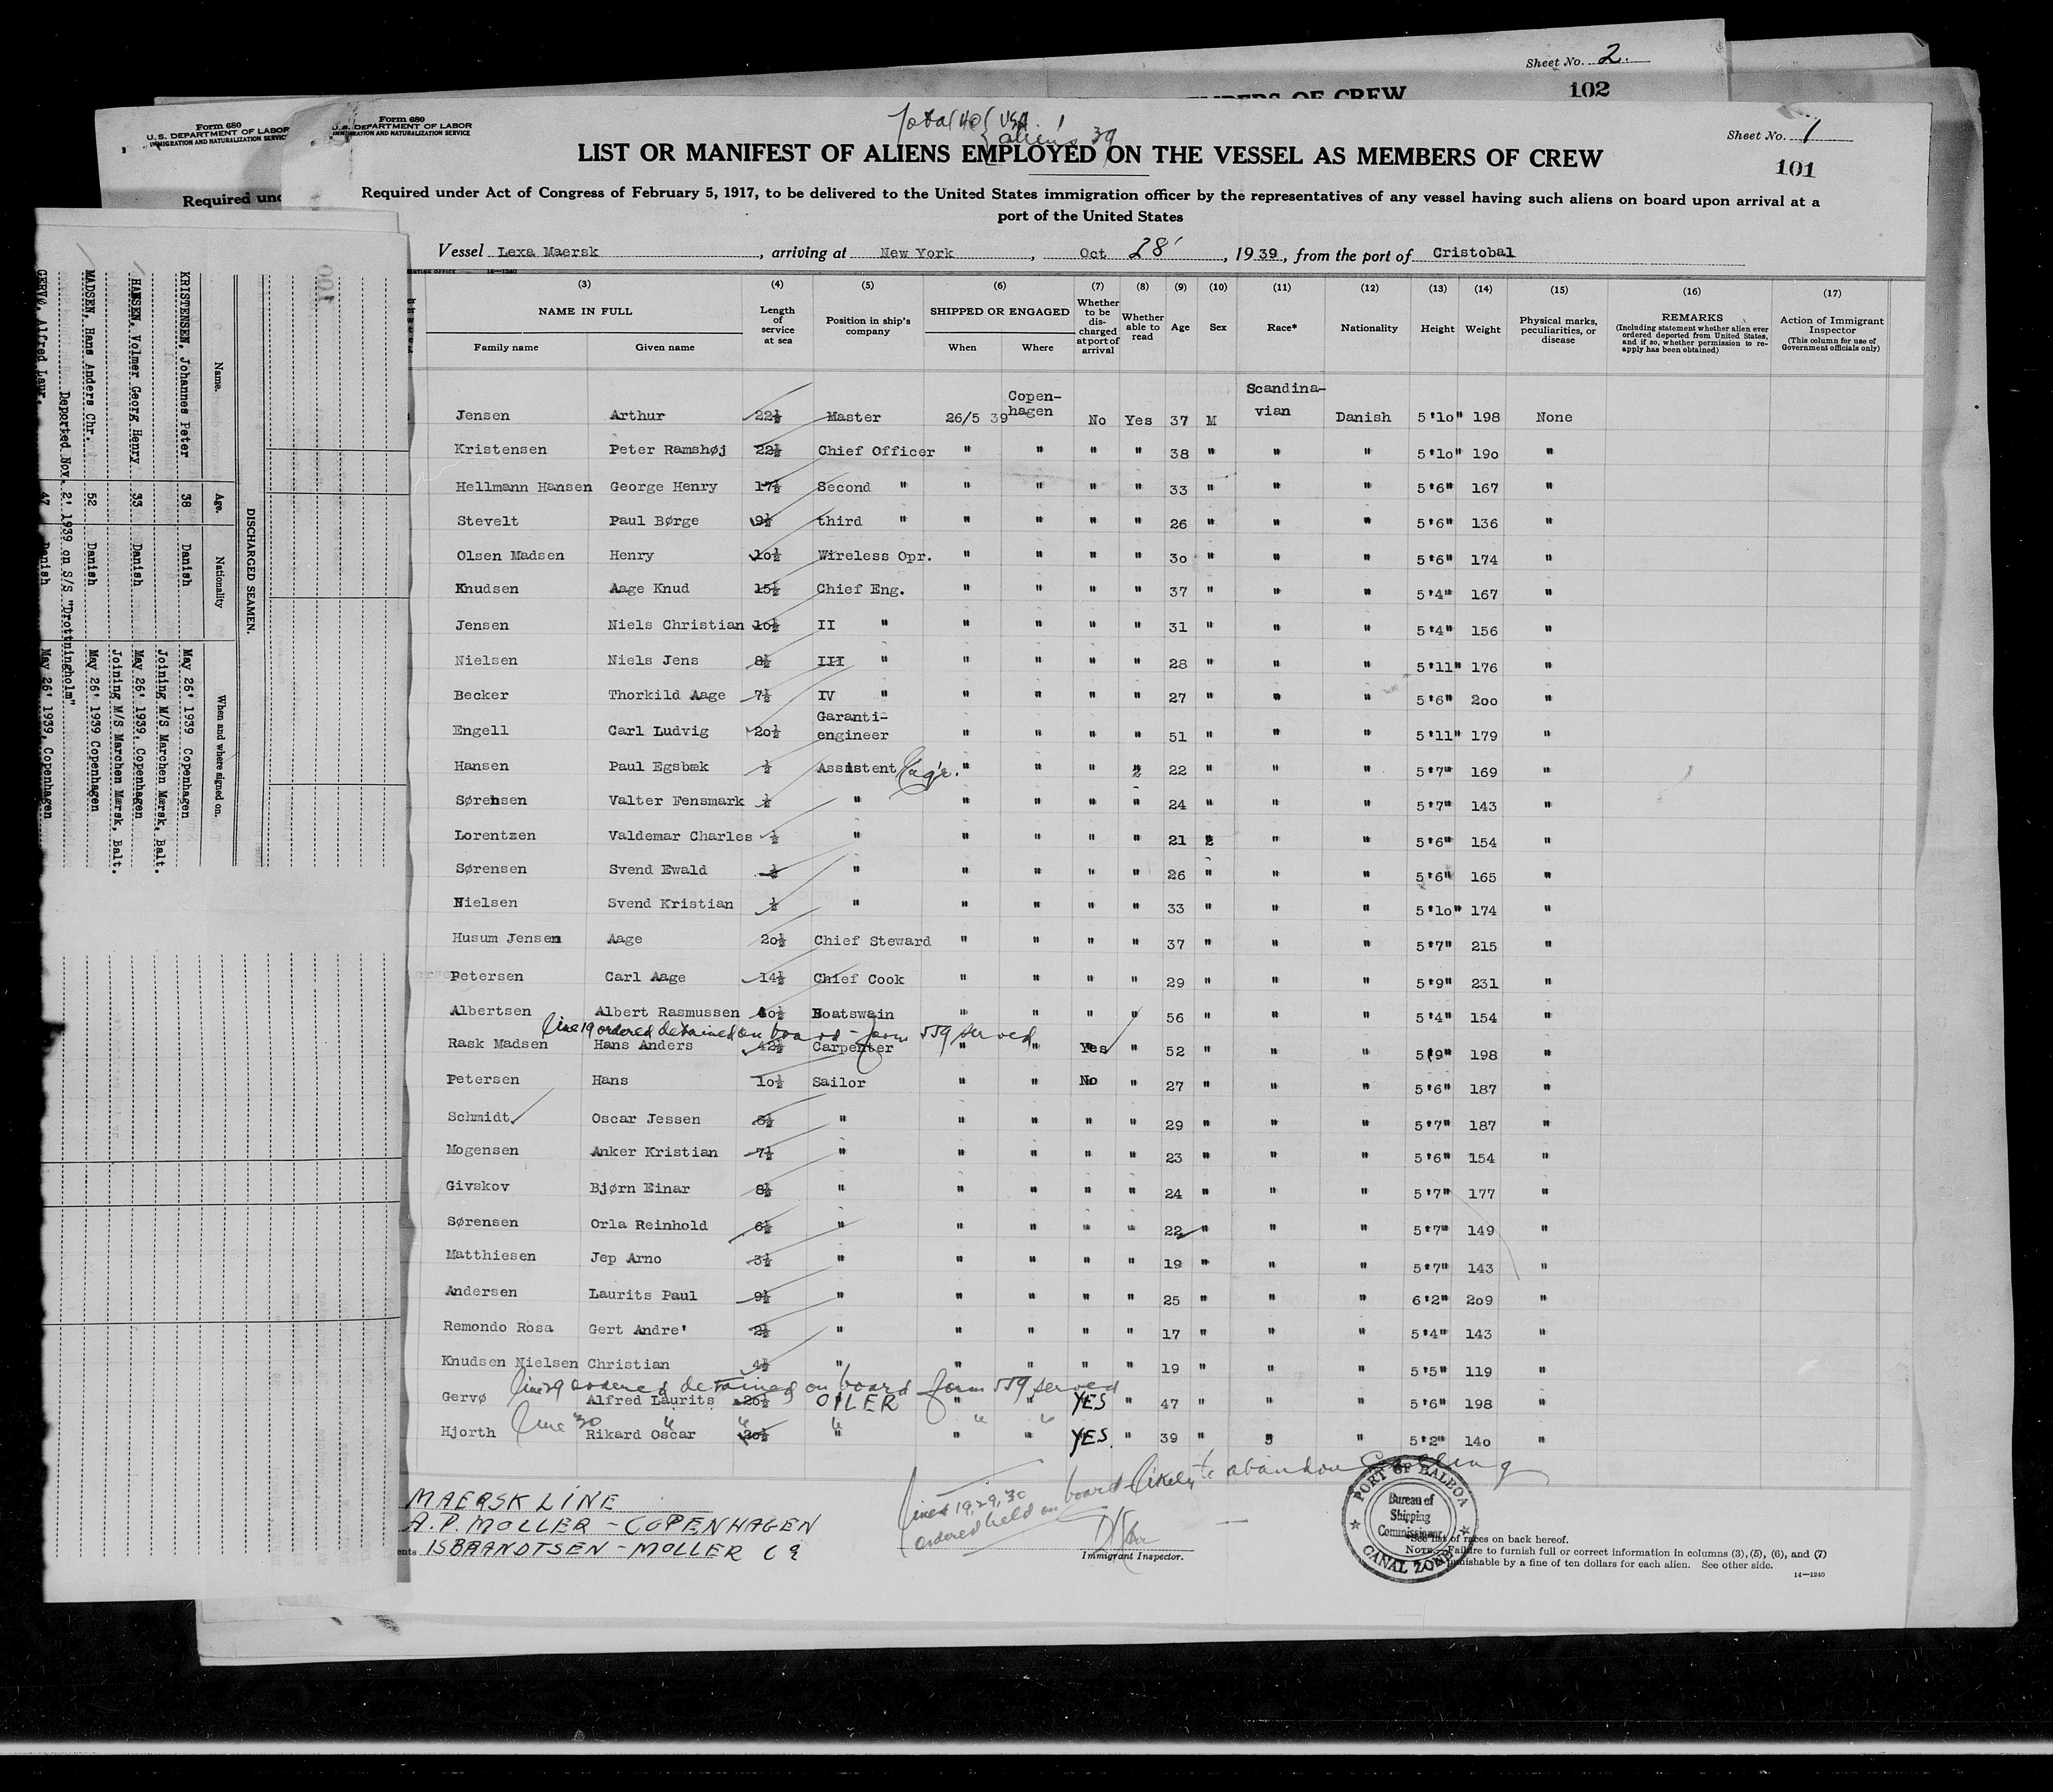 Sheet No. 2.
102
MEMBERS OF CREW
Form 680
U.S. DEPARTMENT OF LABOR
IMMIGRATION AND NATURALIZATION SERVICE
Required und
Form 680
U.S. DEPARTMENT OF LABOR
IMMIGRATION AND NATURALIZATION SERVICE
Total 40 { USA. 1
{ aliens 39
Sheet No. 1
101
LIST OR MANIFEST OF ALIENS EMPLOYED ON THE VESSEL AS MEMBERS OF CREW
Required under Act of Congress of February 5, 1917, to be delivered to the United States immigration officer by the representatives of any vessel having such aliens on board upon arrival at a
port of the United States
Vessel Lexa Maersk, arriving at New York, Oct 28', 1939, from the port of Cristobal
(3) (4) (5) (6) (7) (8) (9) (10) (11) (12) (13) (14) (15) (16) (17)
NAME IN FULL
Family name
Given name
Length of service at sea
Position in ship's company
SHIPPED OR ENGAGED
When
Where
Whether to be discharged at port of arrival
Whether able to read
Age
Sex
Race*
Nationality
Height
Weight
Physical marks, peculiarities, or disease
REMARKS
(Including statement whether alien ever ordered deported from United States, and if so, whether permission to re-apply has been obtained)
Action of Immigrant Inspector
(This column for use of Government officials only)
Jensen Arthur 22½ Master 26/5 39 Copen-hagen No Yes 37 M Scandina-vian Danish 5'10" 198 None
Kristensen Peter Ramshøj 22½ Chief Officer " " " " 38 " " " 5'10" 190 "
Hellmann Hansen George Henry 17½ Second " " " " " 33 " " " 5'6" 167 "
Stevelt Paul Børge 9½ third " " " " " 26 " " " 5'6" 136 "
Olsen Madsen Henry 10½ Wireless Opr. " " " " 30 " " " 5'6" 174 "
Knudsen Aage Knud 15½ Chief Eng. " " " " 37 " " " 5'4" 167 "
Jensen Niels Christian 10½ II " " " " " 31 " " " 5'4" 156 "
Nielsen Niels Jens 8½ III " " " " " 28 " " " 5'11" 176 "
Becker Thorkild Aage 7½ IV " " " " " 27 " " " 5'6" 200 "
Engell Carl Ludvig 20½ Garanti-engineer " " " " 51 " " " 5'11" 179 "
Hansen Paul Egsbæk ½ Assistent Eng'r. " " " " 22 " " " 5'7" 169 "
Sørensen Valter Fensmark ½ " " " " " 24 " " " 5'7" 143 "
Lorentzen Valdemar Charles ½ " " " " " 21 " " " 5'6" 154 "
Sørensen Svend Ewald ½ " " " " " 26 " " " 5'6" 165 "
Nielsen Svend Kristian ½ " " " " " 33 " " " 5'10" 174 "
Husum Jensen Aage 20½ Chief Steward " " " " 37 " " " 5'7" 215 "
Petersen Carl Aage 14½ Chief Cook " " " " 29 " " " 5'9" 231 "
Albertsen Albert Rasmussen 40½ Boatswain " " " " 56 " " " 5'4" 154 "
line 19 ordered detained on board - form 559 served
Rask Madsen Hans Anders 42½ Carpenter " " Yes " 52 " " " 5'9" 198 "
Petersen Hans 10½ Sailor " " No " 27 " " " 5'6" 187 "
Schmidt Oscar Jessen 8½ " " " " " 29 " " " 5'7" 187 "
Mogensen Anker Kristian 7½ " " " " " 23 " " " 5'6" 154 "
Givskov Bjørn Einar 8½ " " " " " 24 " " " 5'7" 177 "
Sørensen Orla Reinhold 6½ " " " " " 22 " " " 5'7" 149 "
Matthiesen Jep Arno 3½ " " " " " 19 " " " 5'7" 143 "
Andersen Laurits Paul 9½ " " " " " 25 " " " 6'2" 209 "
Remondo Rosa Gert Andre' 2½ " " " " " 17 " " " 5'4" 143 "
Knudsen Nielsen Christian 4½ " " " " " 19 " " " 5'5" 119 "
line 29 ordered detained on board form 559 served
Gervø Alfred Laurits 20½ OILER " " YES " 47 " " " 5'6" 198 "
line 30 " " " "
Hjorth Rikard Oscar 20½ " " " YES. " 39 " " " 5'2" 140 "
lines 19, 29, 30
ordered held on board likely to abandon calling
MAERSK LINE
A.P. MOLLER - COPENHAGEN
ISBRANDTSEN - MOLLER Co
Immigrant Inspector.
PORT OF BALBOA
Bureau of
Shipping
Commissioner
CANAL ZONE
*See list of races on back hereof.
NOTE.—Failure to furnish full or correct information in columns (3), (5), (6), and (7)
punishable by a fine of ten dollars for each alien. See other side.
14—1240
100
DISCHARGED SEAMEN.
Name. Age. Nationality When and where signed on.
KRISTENSEN, Johannes Peter 38 Danish May 26' 1939 Copenhagen
Joining M/S Marchen Mærsk, Balt.
HANSEN, Volmer Georg Henry 33 Danish May 26' 1939, Copenhagen
Joining M/S Marchen Mærsk, Balt.
MADSEN, Hans Anders Chr. 52 Danish May 26' 1939 Copenhagen
Deported Nov. 2' 1939 on S/S "Drottningholm"
GERVØ, Alfred Laur. 47 Danish May 26' 1939, Copenhagen